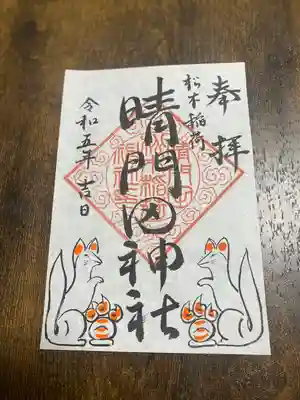 奉拝
松木稲荷
晴門田神社
令和五年吉日